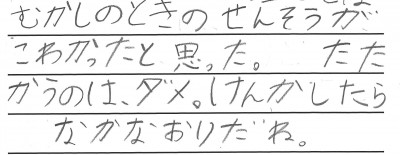 むかしのときのせんそうが
こわかったと思った。 たた
かうのは、ダメ。けんかしたら
なかなおりだね。